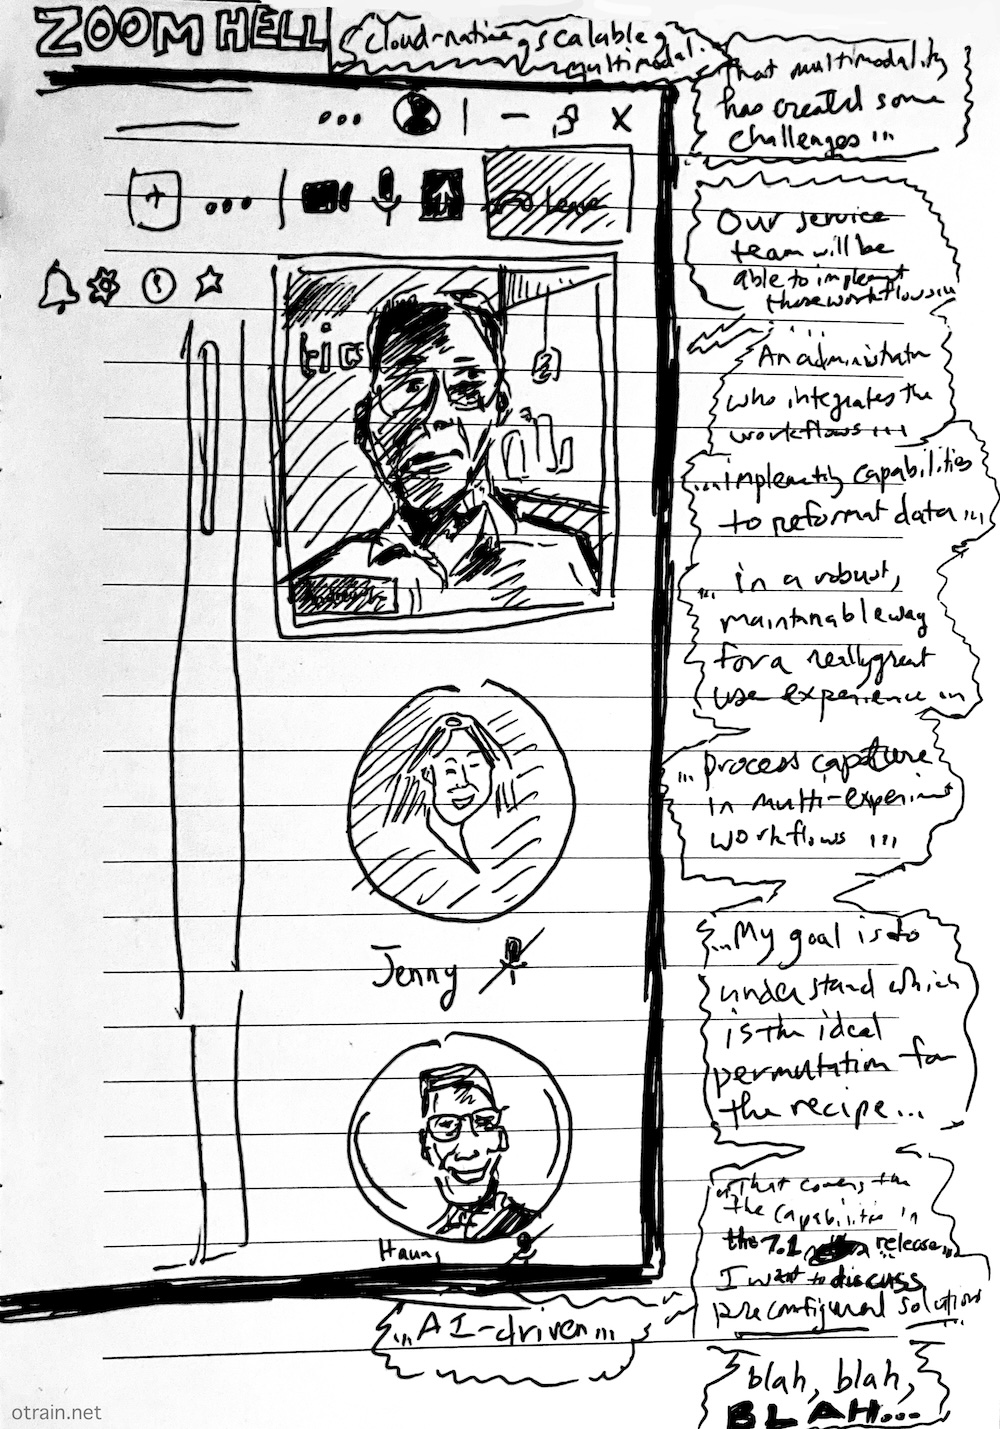 ZOOM HELL
Cloud-native, scalable,
multimodal.
That multimodality
has created some
challenges...
Leave
Our service
team will be
able to implement
those workflows...
tics
An administrator
who integrates the
workflows...
to reformat data...
... in a robust,
maintainable way
for a really great
user experience...
... process capture
in multi-experiment
workflows...
...My goal is to
understand which
is the ideal
permutation for
the recipe...
Jenny
...That covers the
the capabilities in
the 7.1 release...
I want to discuss
preconfigured solutions
Haung
...AI-driven...
blah, blah,
BLAH...
otrain.net